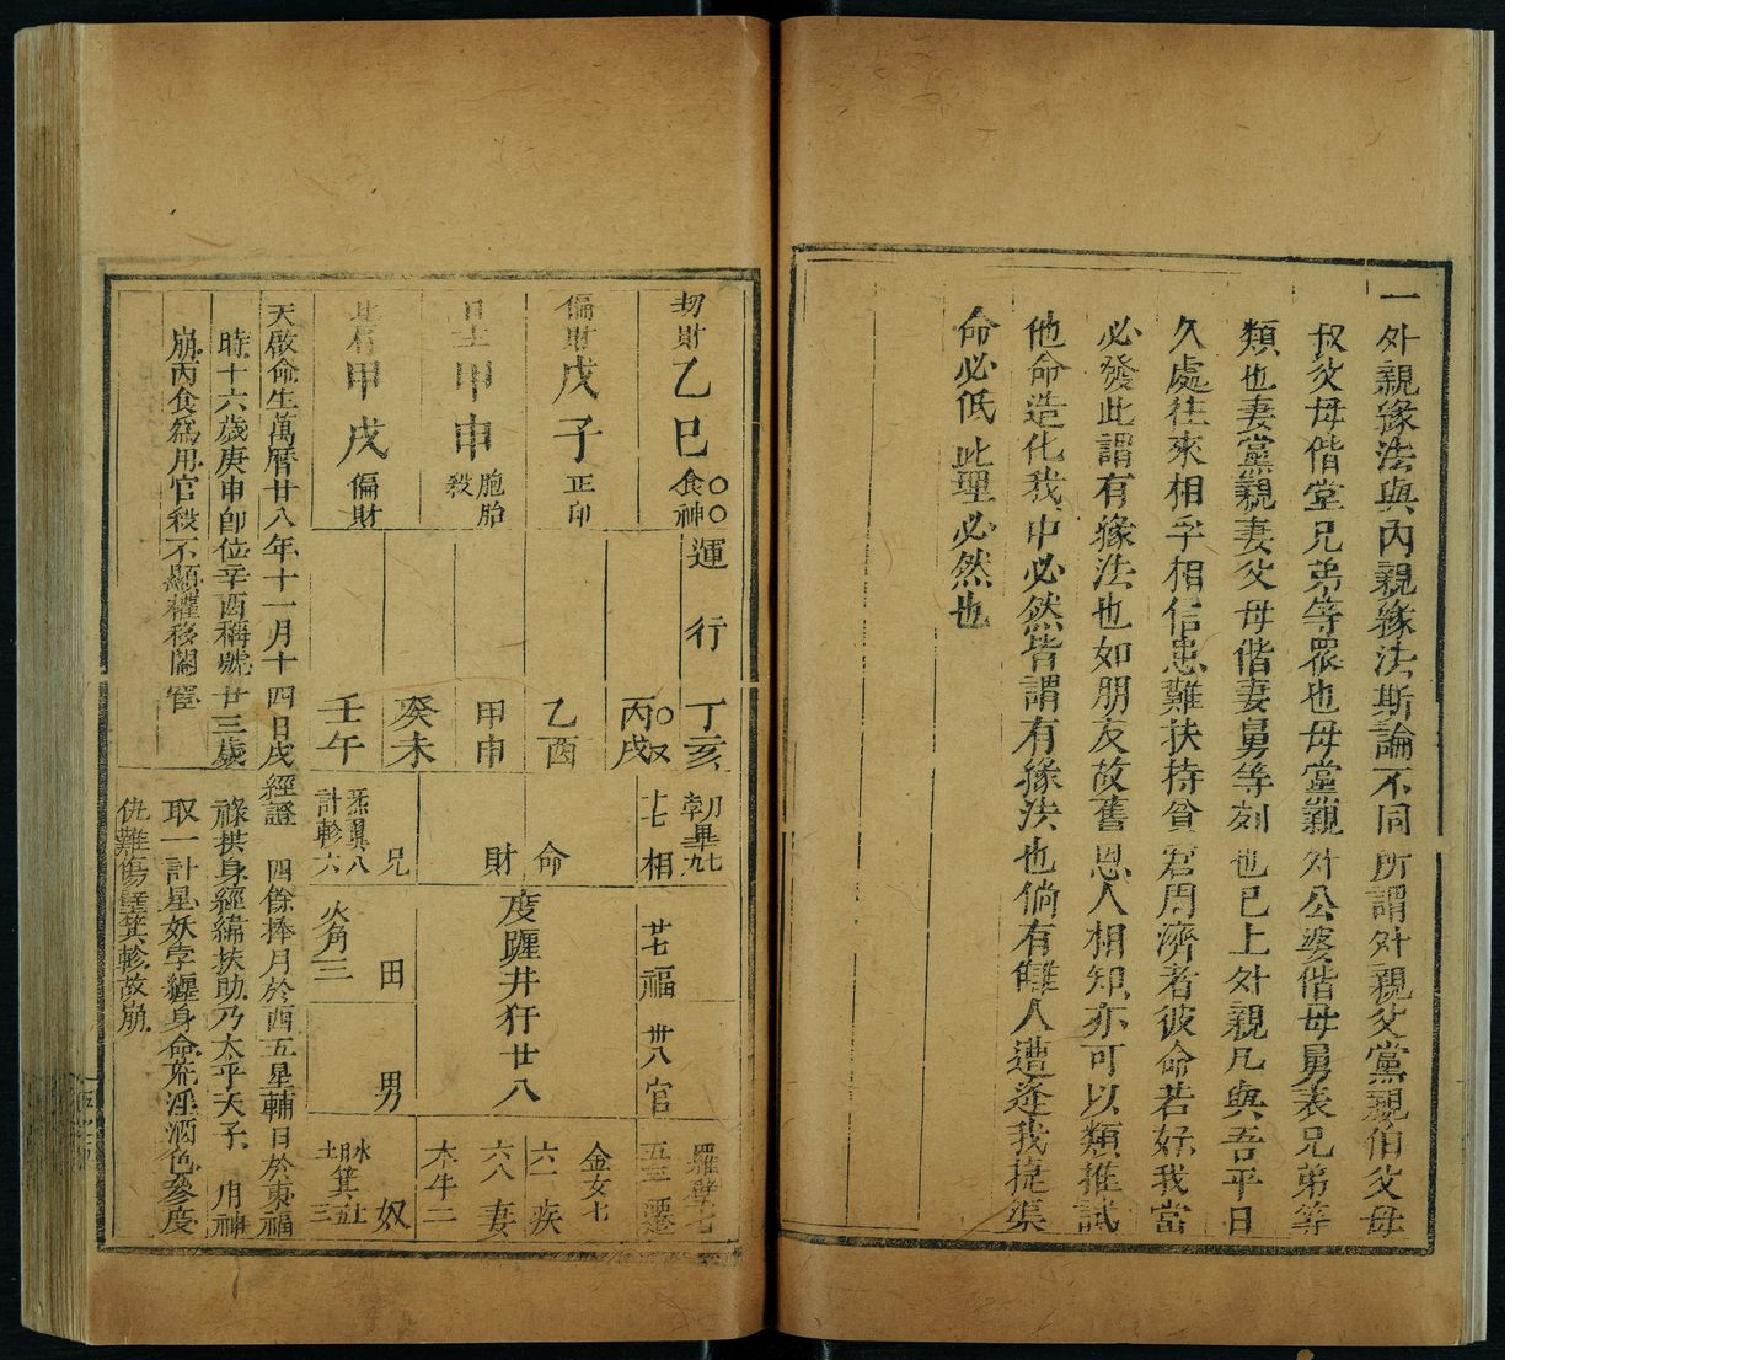 一外親緣法與內親緣法斯論不同所謂外親父黨親伯父母
叔父母偕堂兄弟等眾也母堂親外公婆偕母舅表兄弟等
類也妻黨親妻父母偕妻舅等刻也已上外親凡與吾平日
久處往來相孚相信患難扶持貧窘周濟者彼命若好我當
必發此謂有緣法也如朋友故舊恩人相知亦可以類推試
他命造化我申必然皆謂有緣法也倘有雠人遭逢我提渠
命必低此理必然也
刼財乙巳食神
偏財戊子正印
日主甲申胞胎殺
比肩甲戌偏財
運行
丁亥
丙戌
乙酉
甲申
癸未
壬午
七相
命
財
兄
計軫六
廿七福
卅八官
度躔井犴廿八
火角三
田
男
羅壁七
五三遷
金女七
六一疾
六八妻
木牛二
奴
天啟命生萬曆廿八年十一月十四日戌
時十六歲庚申卽位辛酉稱號廿三歲
崩丙食爲用官殺不顯權移閹宦
經證四餘捧月於西五星輔日於東福
祿拱身經緯扶助乃太平天子用神
取一計星妖孛纏身命荒淫酒色參度
仇難傷壁箕軫故崩